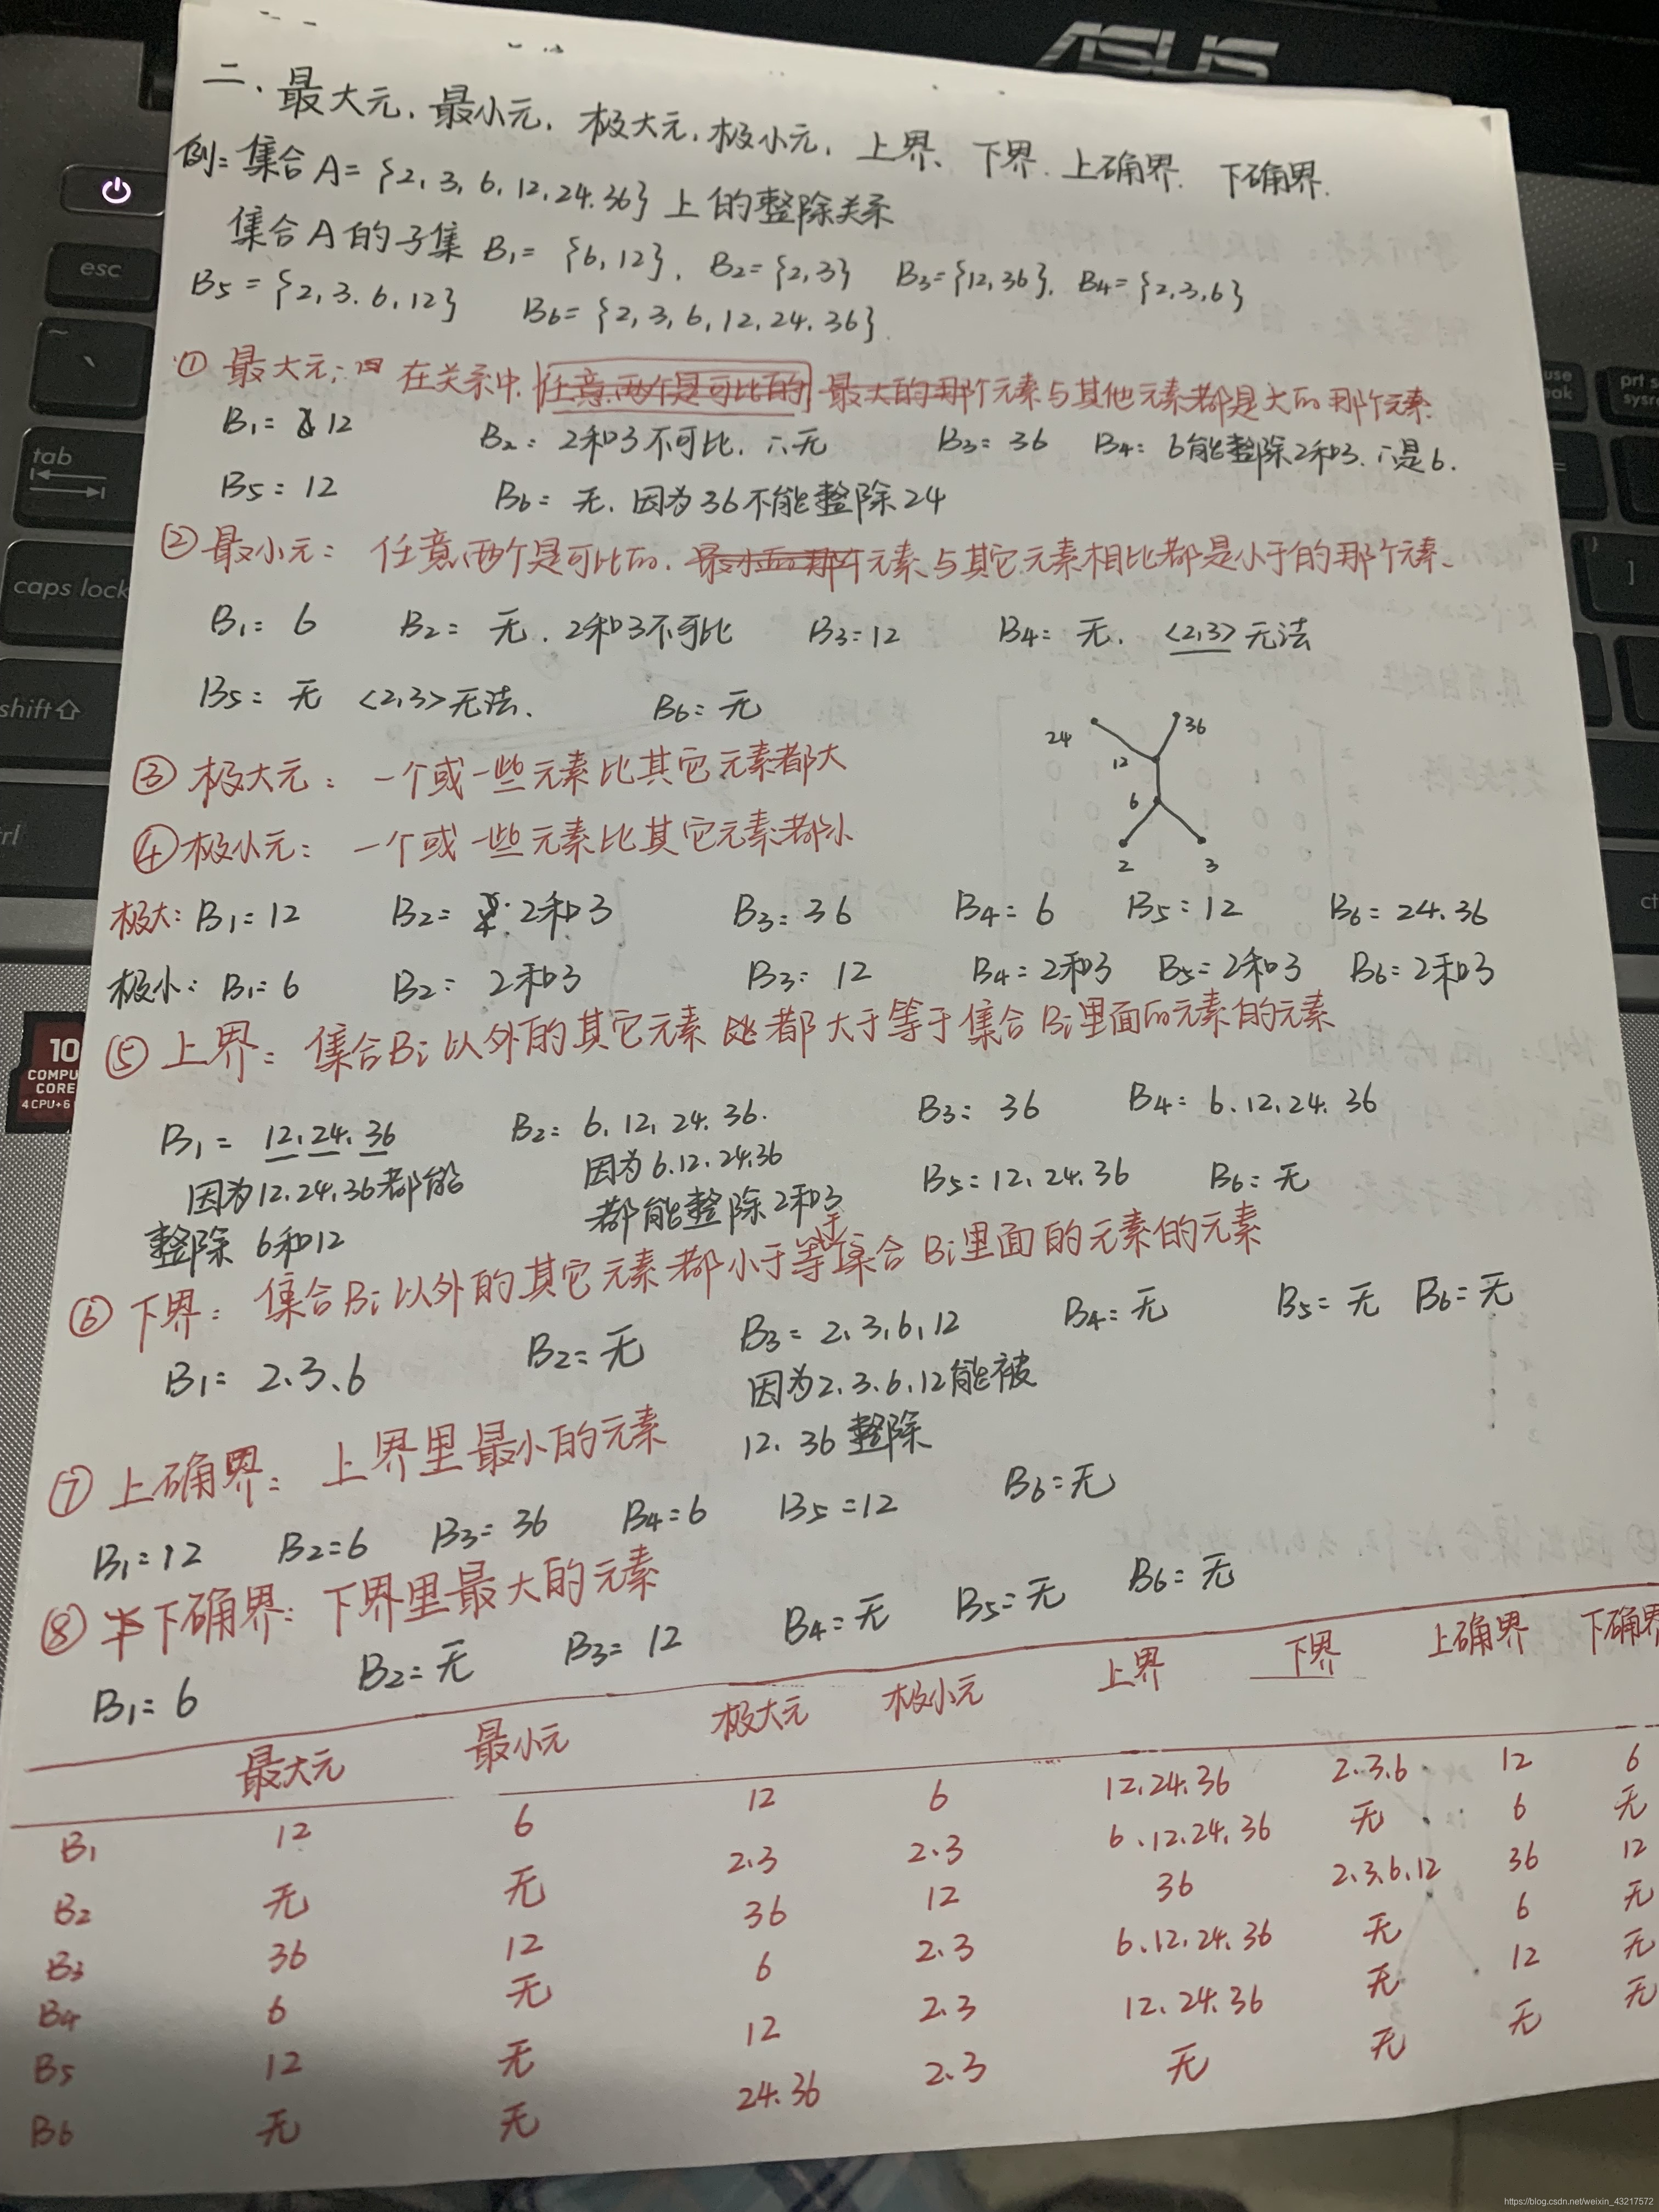 ASUS
二、最大元、最小元、极大元、极小元、上界、下界、上确界、下确界.
例: 集合A={2, 3, 6, 12, 24, 36} 上的整除关系
集合A的子集 B1= {6, 12}, B2={2,3} B3={12,36}, B4={2,3,6}
B5={2, 3, 6, 12} B6={2, 3, 6, 12, 24, 36}
① 最大元: 在关系中, 任意两个是可比的 最大的那个元素与其他元素都是大的那个元素.
B1= 12 B2: 2和3不可比, ∴无 B3= 36 B4: 6能整除2和3, ∴是6.
B5= 12 B6= 无, 因为36不能整除24
② 最小元: 任意两个是可比的, 最小的那个元素与其它元素相比都是小于的那个元素.
B1= 6 B2= 无, 2和3不可比 B3=12 B4= 无, <2,3>无法
B5= 无 <2,3>无法. B6= 无
24 36
12
6
2 3
③ 极大元: 一个或一些元素比其它元素都大
④ 极小元: 一个或一些元素比其它元素都小
极大: B1=12 B2= 2和3 B3= 36 B4=6 B5=12 B6= 24.36
极小: B1=6 B2= 2和3 B3= 12 B4=2和3 B5=2和3 B6=2和3
⑤ 上界: 集合Bi以外的其它元素 都大于等于集合Bi里面的元素的元素
B1= 12.24.36 B2= 6, 12, 24. 36. B3= 36 B4= 6.12.24.36
因为12.24.36都能 因为6.12.24.36 B5=12.24.36 B6=无
整除 6和12 都能整除2和3
⑥ 下界: 集合Bi以外的其它元素都小于等于集合Bi里面的元素的元素
B1= 2.3.6 B2=无 B3= 2.3.6.12 B4=无 B5=无 B6=无
因为2.3.6.12能被
12. 36 整除
⑦ 上确界: 上界里最小的元素
B1=12 B2=6 B3=36 B4=6 B5=12 B6=无
⑧ 下确界: 下界里最大的元素
B1=6 B2=无 B3= 12 B4=无 B5=无 B6=无
最大元 最小元 极大元 极小元 上界 下界 上确界 下确界
B1 12 6 12 6 12.24.36 2.3.6 12 6
B2 无 无 2.3 2.3 6.12.24.36 无 6 无
B3 36 12 36 12 36 2.3.6.12 36 12
B4 6 无 6 2.3 6.12.24.36 无 6 无
B5 12 无 12 2.3 12.24.36 无 12 无
B6 无 无 24.36 2.3 无 无 无 无
esc
tab
caps lock
shift
prt sc
sysrq
10
COMPU
CORE
4 CPU+6
https://blog.csdn.net/weixin_43217572